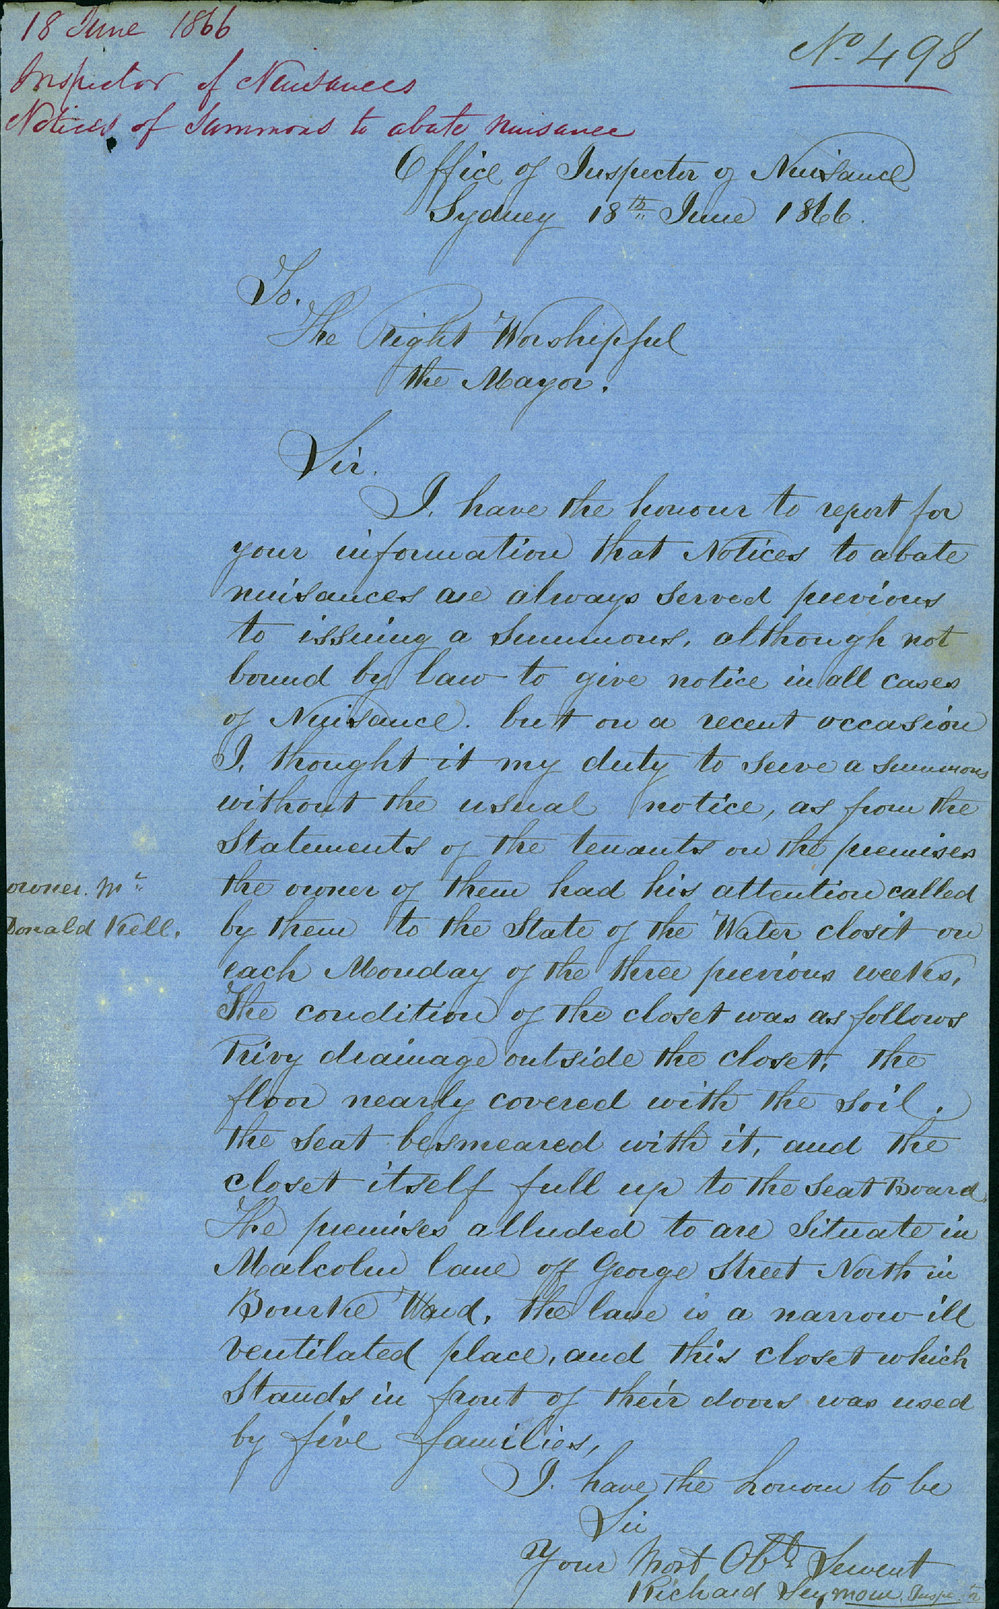 18 June 1866
Inspector of Nuisances
Notices of Summons to abate nuisance
No 498
Office of Inspector of Nuisance
Sydney 18th June 1866.
To.
The Right Worshipful
the Mayor.
Sir.
I. have the honour to report for
your information that Notices to abate
nuisances are always served previous
to issuing a summons, although not
bound by law to give notice in all cases
of Nuisance. but on a recent occasion
I, thought it my duty to serve a summons
without the usual notice, as from the
Statements of the tenants on the premises
the owner of them had his attention called
by them to the State of the Water closit on
each Monday of the three previous weeks,
The condition of the closet was as follows
Privy drainage outside the closet, the
floor nearly covered with the soil.
the seat besmeared with it, and the
closet itself full up to the seat Board
The premises alluded to are Situate in
Malcolm lane off George Street North in
Bourke Ward, the lane is a narrow ill
ventilated place, and this closet which
Stands in front of their doors was used
by five families,
owner. Mr
Donald Kell,
I. have the honour to be
Sir
Your Most Obt Servent
Richard Seymour Inspector